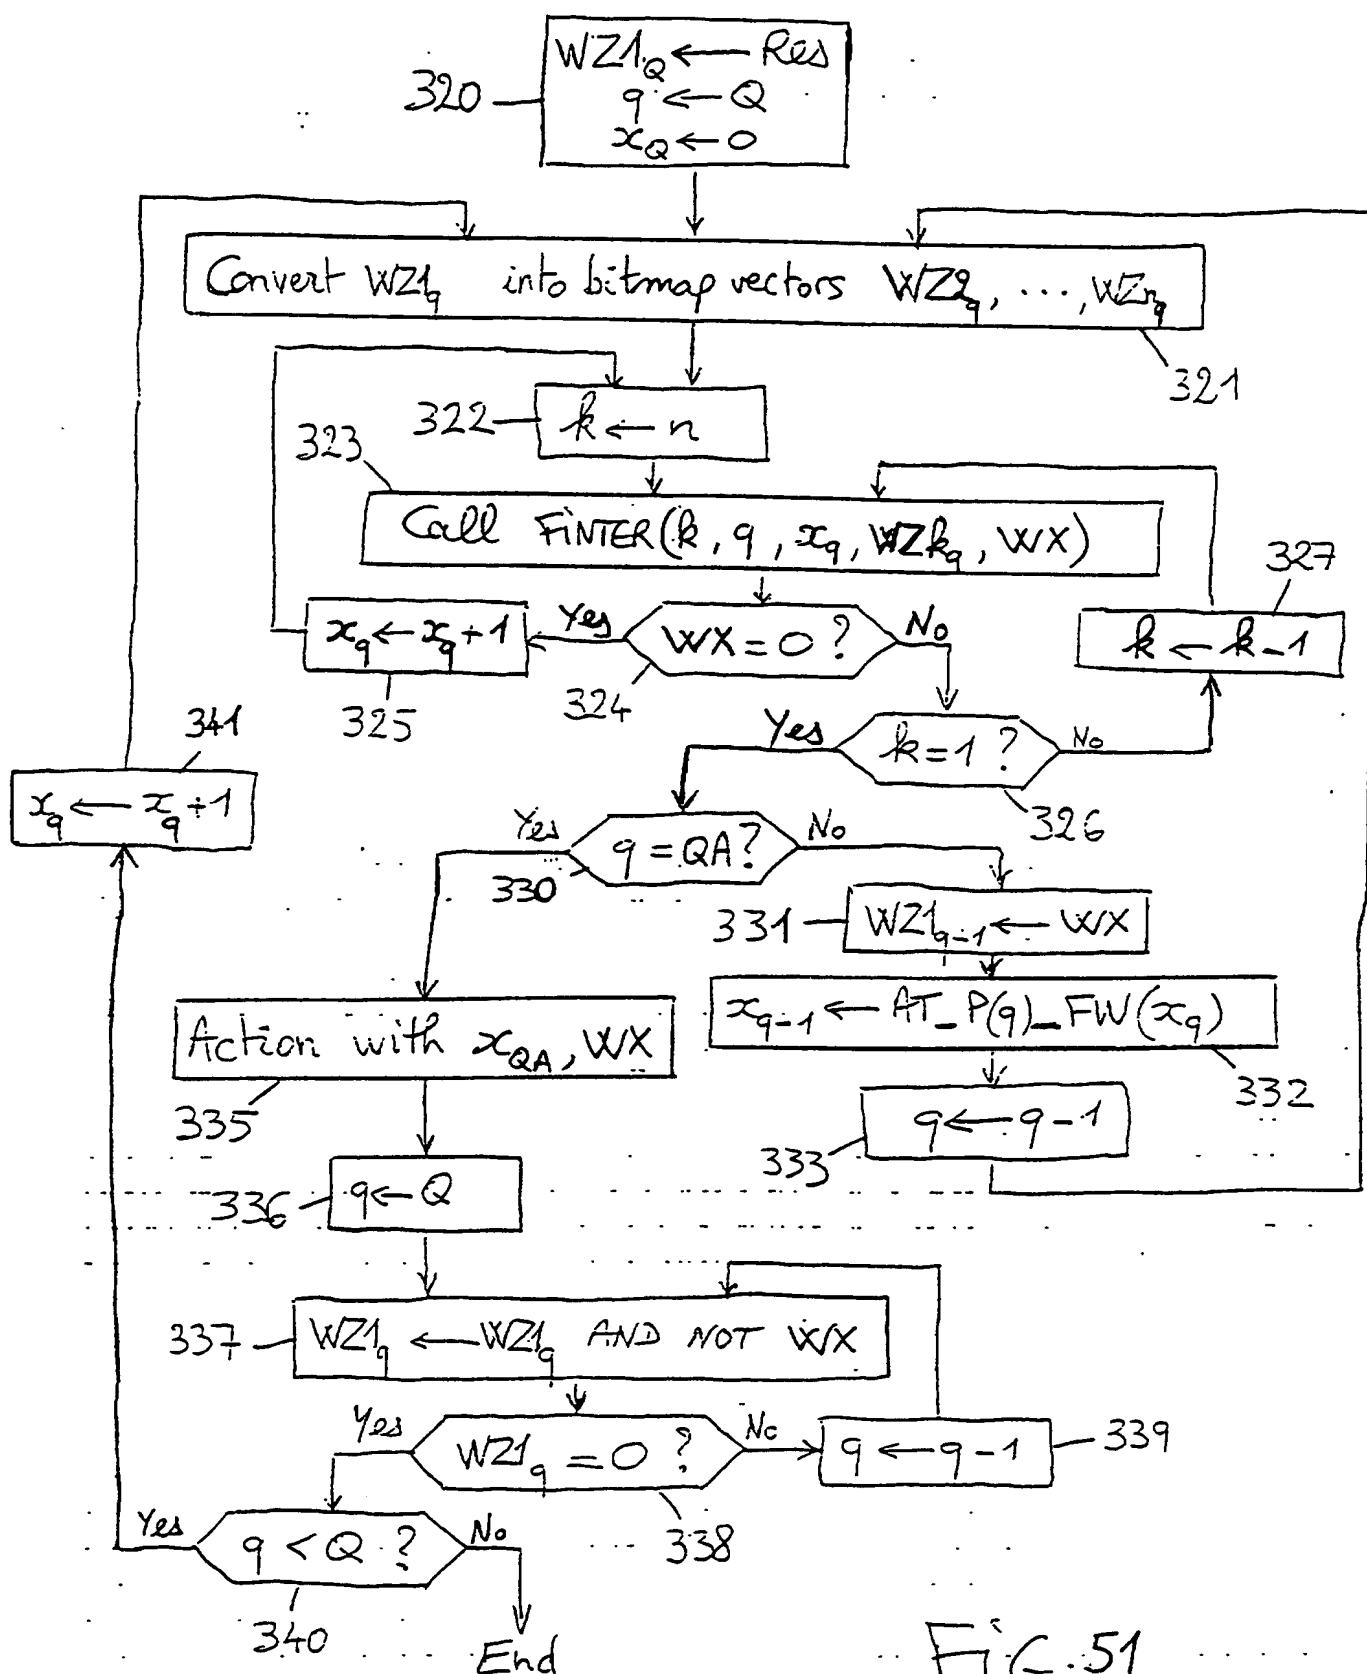 WZ1Q ← Res
320
q ← Q
xQ ← 0
Convert WZ1q into bitmap vectors WZ2q, ..., WZnq
321
322
k ← n
323
Call FINTER(k, q, xq, WZkq, WX)
327
xq ← xq + 1
Yes
WX = 0 ?
No
k ← k - 1
325
324
341
Yes
k = 1 ?
No
xq ← xq + 1
326
Yes
q = QA ?
No
330
331
WZ1q-1 ← WX
xq-1 ← AT_P(q)_FW(xq)
Action with xQA, WX
332
335
q ← q - 1
333
336
q ← Q
337
WZ1q ← WZ1q AND NOT WX
Yes
WZ1q = 0 ?
No
q ← q - 1
339
Yes
q < Q ?
No
338
340
End
FiG. 51